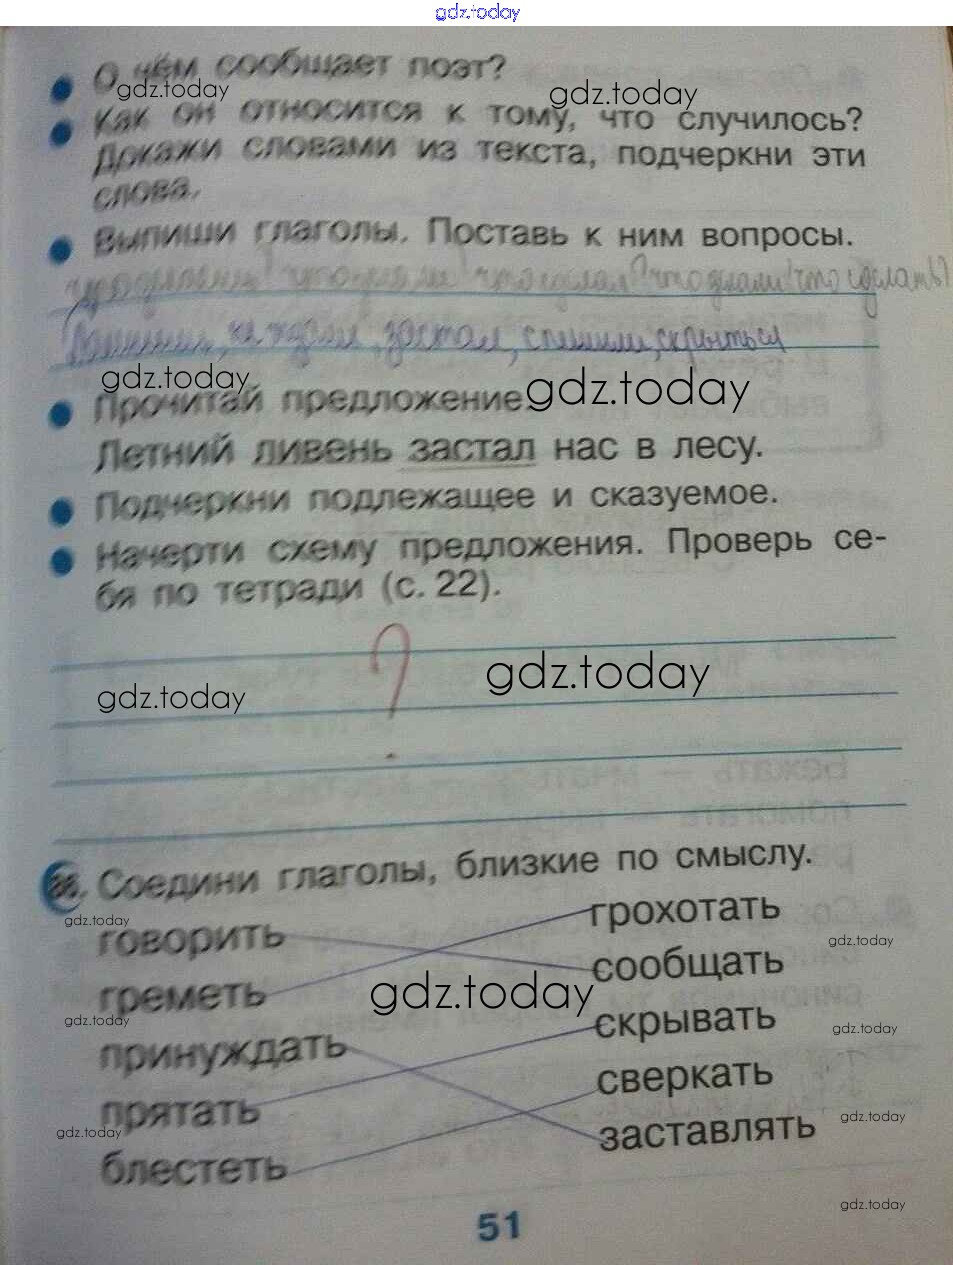 gdz.today
О чём сообщает поэт?
gdz.today gdz.today
Как он относится к тому, что случилось?
Докажи словами из текста, подчеркни эти
слова.
Выпиши глаголы. Поставь к ним вопросы.
что сделать?
застал, спешим, скрыться
gdz.today gdz.today
Прочитай предложение.
Летний ливень застал нас в лесу.
Подчеркни подлежащее и сказуемое.
Начерти схему предложения. Проверь се-
бя по тетради (с. 22).
?
gdz.today gdz.today
Соедини глаголы, близкие по смыслу.
gdz.today
говорить грохотать
gdz.today
греметь сообщать
gdz.today
gdz.today
принуждать скрывать
gdz.today
прятать сверкать
gdz.today
gdz.today
блестеть заставлять
gdz.today
51